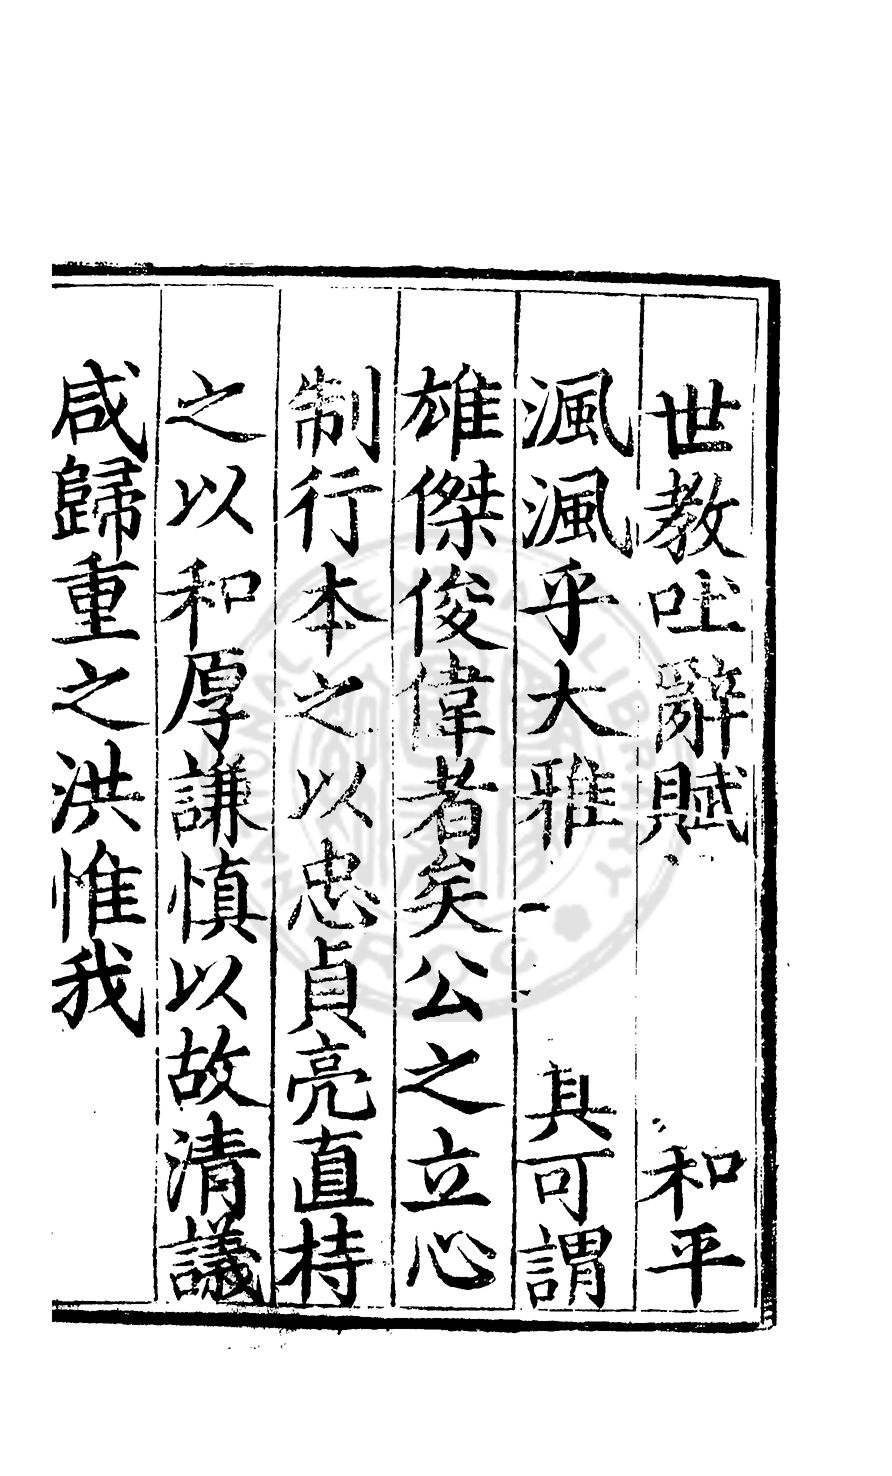 世教吐辭賦和平
渢渢乎大雅具可謂
雄傑俊偉者矣公之立心
制行本之以忠貞亮直持
之以和厚謙慎以故清議
咸歸重之洪惟我